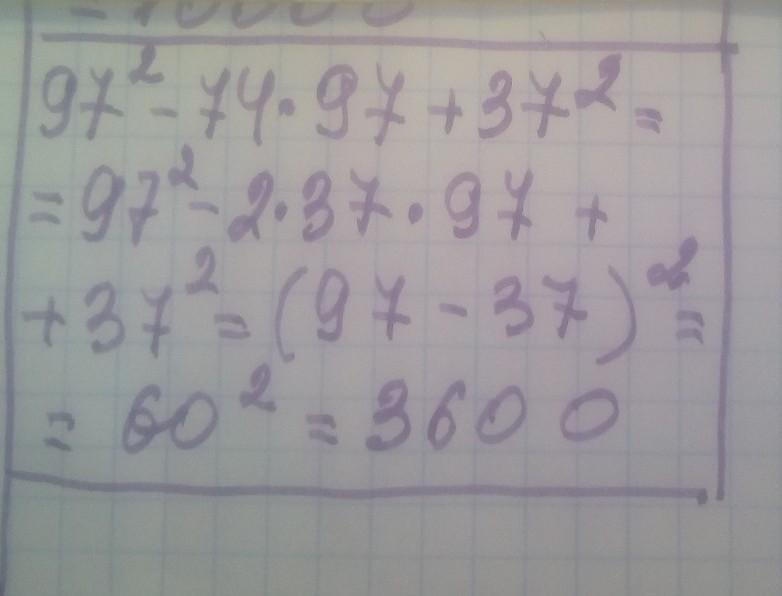 = 10000
97² - 74 · 97 + 37² =
= 97² - 2 · 37 · 97 +
+ 37² = (97 - 37)² =
= 60² = 3600